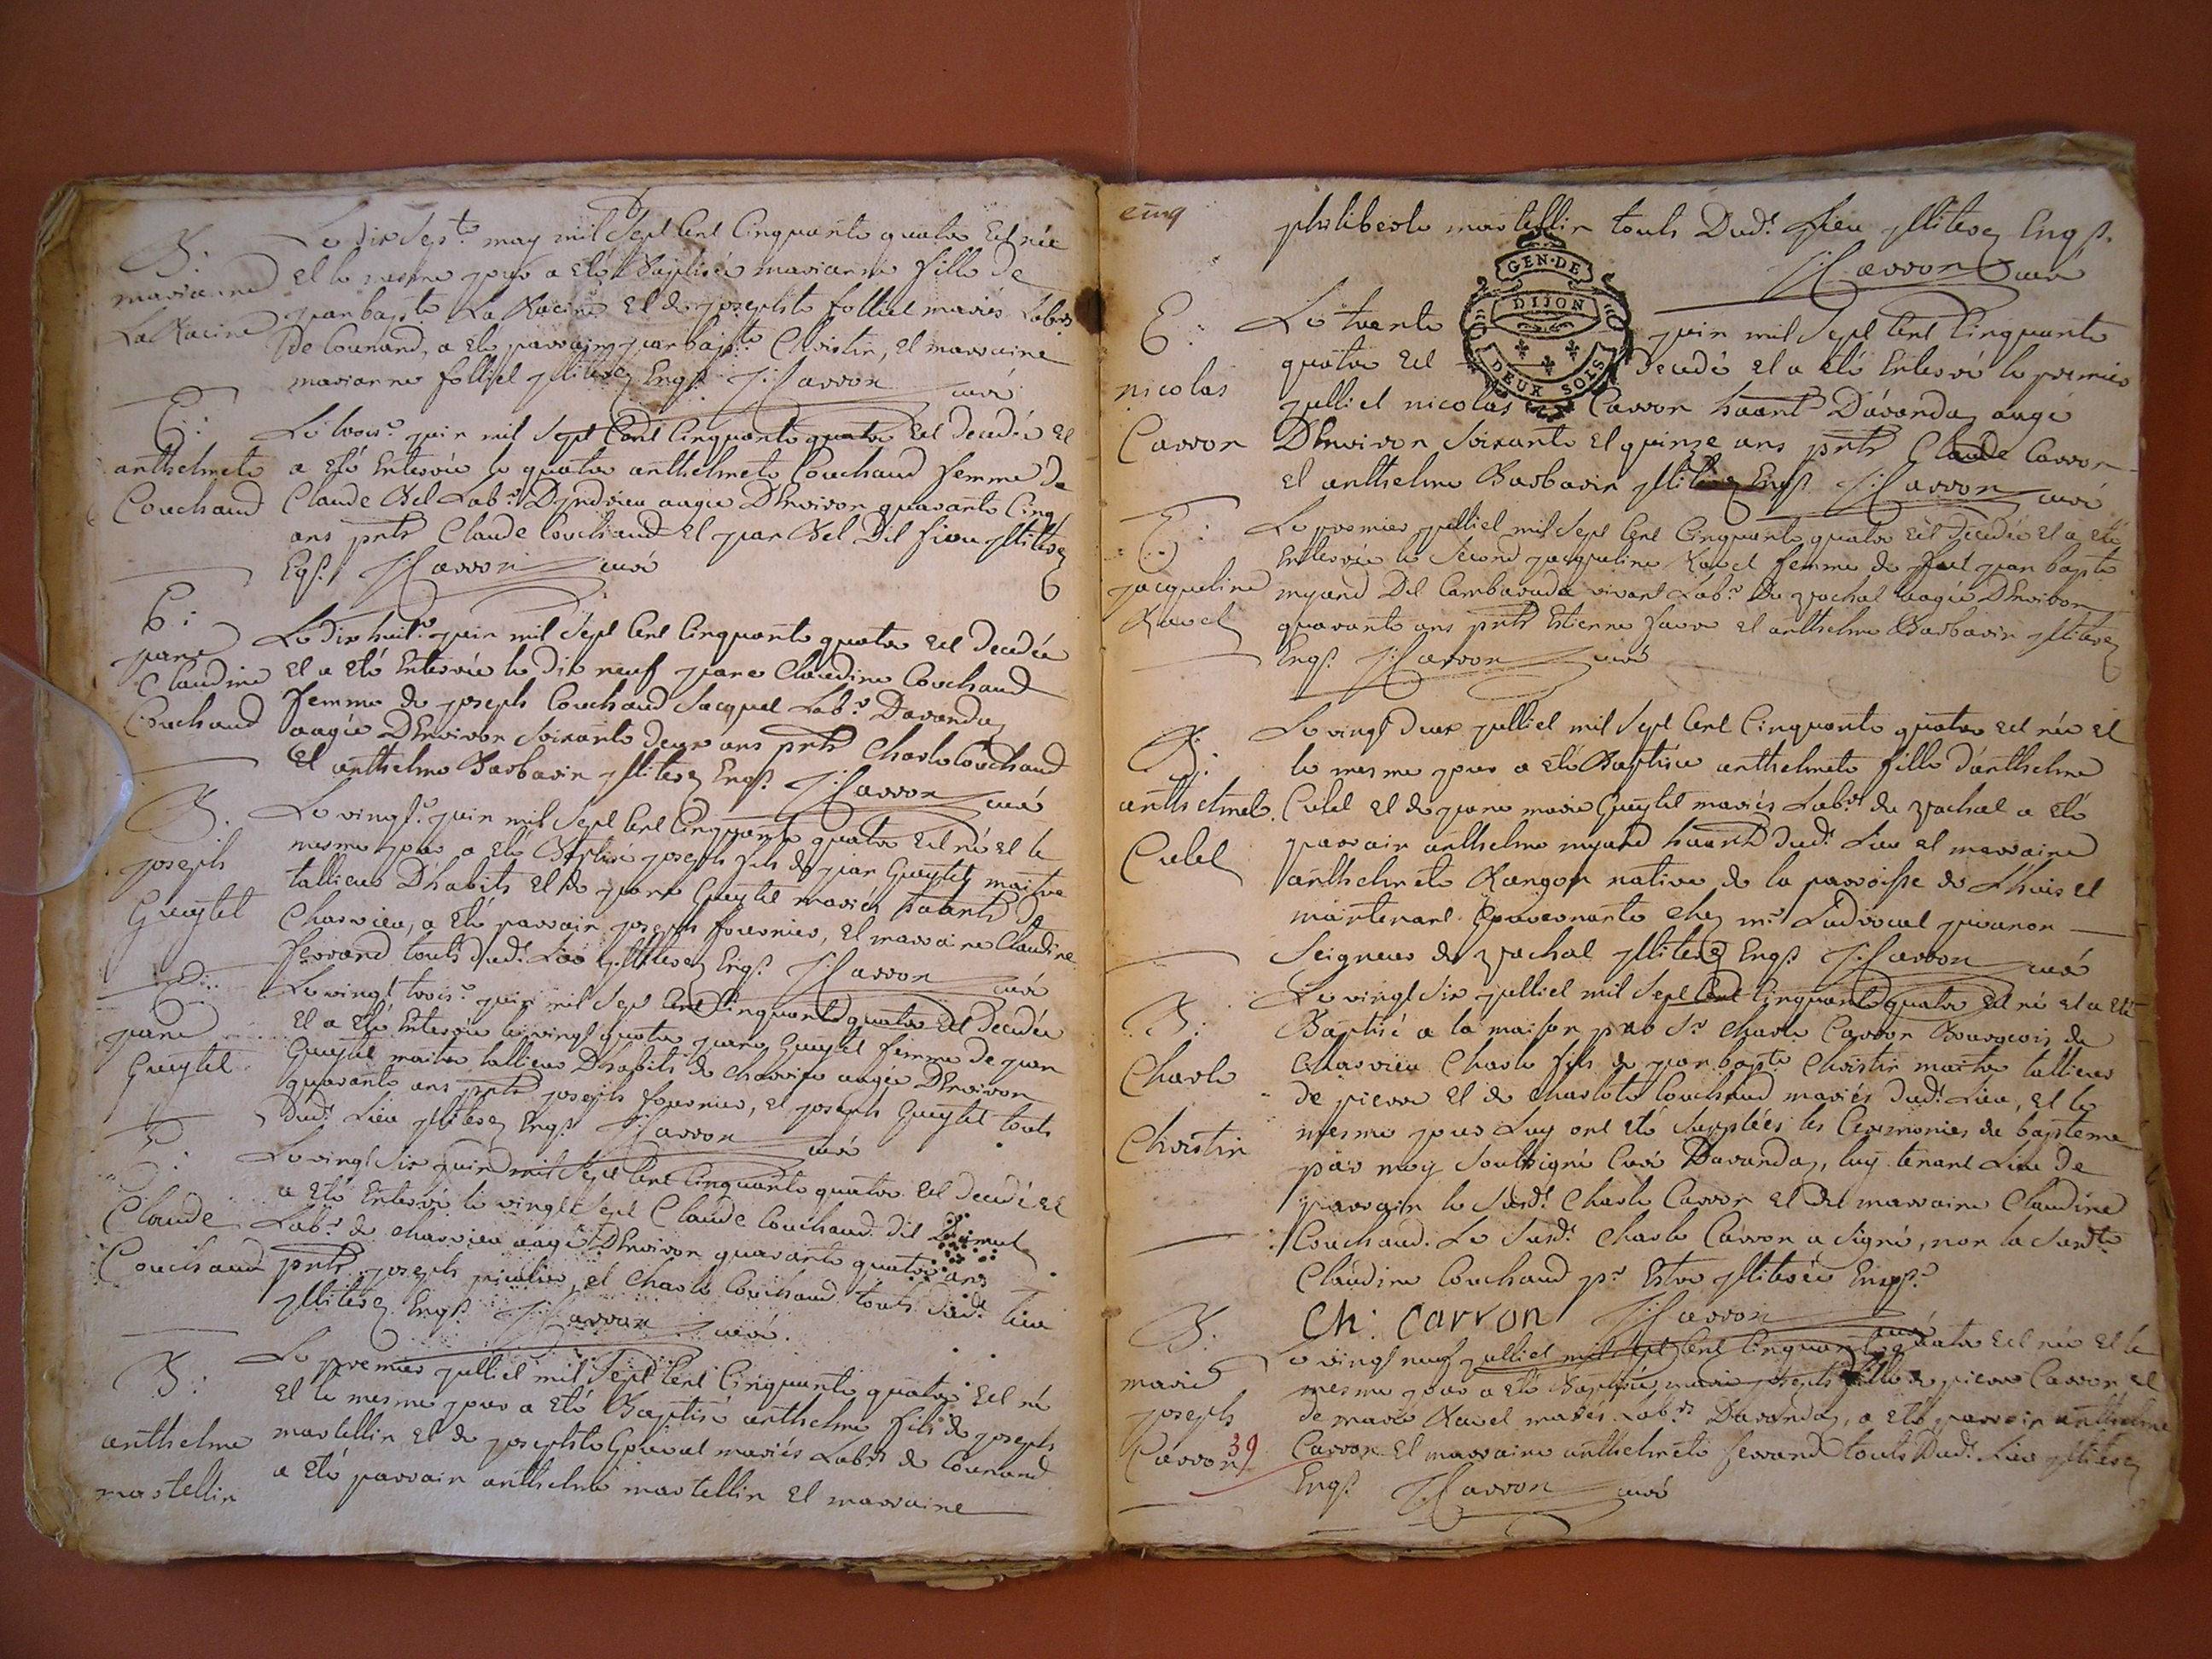 B:
marianne
La Racine
Le dix sept.e may mil sept Cent Cinquante quatre Est née
et le mesme jour a eté Baptisée marianne fille de
jean bapt.e La Racine et de josephte folliet mariés Labrs
De Counand, a eté parrain jean bapt.e Christin, et marraine
marianne folliet illiterez Enqs. J: Carron curé
E:
anthelmete
Couchaud
Le trois.e juin mil sept Cent Cinquante quatre Est decedée et
a eté Enterrée le quatre anthelmete Couchaud femme de
Claude Bel Labr. Dandrieu augée D'Environ quarante Cinq
ans pnts Claude Couchaud et jean Bel Dit illiterez
Eqs. J: Carron curé
E:
jane
Claudine
Couchaud
Le dix huit.e juin mil sept Cent Cinquante quatre Est decedée
et a eté Enterrée le dix neuf jane Claudine Couchaud
femme de joseph Couchaud Jacquet Labr. Davanday
aagée D'Environ soixante deux ans pnts Charle Couchaud
et anthelme Barbarin illiterez Enqs. J: Carron curé
B.
joseph
Gueytet
Le vingt.e juin mil sept Cent Cinquante quatre Est né et le
mesme jour a eté Baptisé joseph fils de jean Guytet maitre
tallieur D'habits et de jane Guytet mariés haants de
Charvieu, a eté parrain joseph fournier, et marraine Claudine
ferrand touts dud.t Lieu illiterez Enqs. J: Carron curé
E:
jane
Gueytet
Le vingt trois.e juin mil sept Cent Cinquante quatre Est decedée
et a eté Enterrée le vingt quatre jane Guytet femme de jean
Guytet maitre tallieur D'habits de Charvieu augée D'Environ
quarante ans pnts joseph fournier, et joseph Guytet touts
Dud.t Lieu illiterez Enqs. J: Carron curé
E:
Claude
Couchaud
Le vingt six juin mil sept Cent Cinquante quatre Est decedé et
a eté Enterré le vingt sept Claude Couchaud dit
Labr. de Charvieu augé D'Environ quarante quatre ans
pnts joseph et Charle Couchaud touts dud.t lieu
illiterez Enqs. J: Carron curé.
B:
anthelme
martellin
Le premier julliet mil sept Cent Cinquante quatre Est né
et le mesme jour a eté Baptisé anthelme fils de joseph
martellin et de josephte Goiraul mariés Labrs de Counand
a eté parrain anthelme martellin et marraine
cinq
philiberte martellin touts Dud.t Lieu illiterez Enqs.
J: Carron curé
GEN·DE
DIJON
DEUX SOLS
E:
nicolas
Carron
Le trente juin mil sept Cent Cinquante
quatre Est decedé et a eté Enterré le premier
julliet nicolas Carron haant Davanday augé
D'Environ soixante et quinze ans pnts Claude Carron
et anthelme Barbarin illiterez Enqs. J: Carron curé
E:
jacqueline
Ravel
Le premier julliet mil sept Cent Cinquante quatre Est decedée et a eté
Enterrée le second jacqueline Ravel femme de feut jean bapte
myand Dit Lambarada vivant Labr. De vachat augée D'Environ
quarante ans pnts Estienne favre et anthelme Barbarin illiterez
Enqs. J: Carron curé
B:
anthelmete
Culet
Le vingt deux julliet mil sept Cent Cinquante quatre Est née et
le mesme jour a eté Baptisée anthelmete fille d'anthelme
Culet et de jane marie Gueytet mariés Labrs de vachat a eté
parrain anthelme myand haant dud.t Lieu et marraine
anthelmete Rangon native de la parroisse de Lhuis et
maintenant Gouvernante chez mr. Ludvocat piranon
Seigneur de vachat illiterez Enqs. J: Carron curé
B:
Charle
Christin
Le vingt six julliet mil sept Cent Cinquante quatre Est né et a eté
Baptisé a la maison par Sr. Charle Carron Bourgeois de
Charvieu Charle fils de jean bapt.e Christin maitre tallieur
de pierre et de Charlote Couchaud mariés dud.t Lieu, et le
mesme jour Luy ont eté supplées les Ceremonies du bapteme
par moy soubsigné Curé Davanday, luy tenant Lieu de
parrain le Susd.t Charle Carron et de marraine Claudine
Couchaud. Le Susd.t Charle Carron a signé, non la Susd.te
Claudine Couchaud pr. Estre illiterée Enqs.e
Ch: Carron J: Carron curé
B.
marie
joseph
Carron
39
Le vingt neuf julliet mil sept Cent Cinquante quatre Est née et le
mesme jour a eté Baptisée marie joseph fille de pierre Carron et
de marie Ravel mariés Labrs Davanday, a eté parrain anthelme
Carron et marraine anthelmete ferrand touts Dud.t Lieu illiterez
Enqs. J: Carron curé